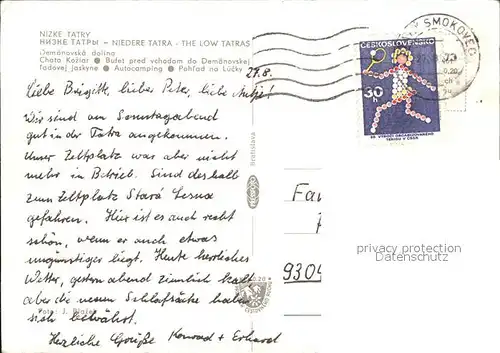 NÍZKE TATRY
НИЗКЕ ТАТРЫ — NIEDERE TATRA - THE LOW TATRAS
Demänovská dolina
Chata Kožiar • Bufet pred vchodom do Demänovskej
ľadovej jaskyne • Autocamping • Pohľad na Lúčky
27.8.
Liebe Brigitt, lieber Peter, liebe
Wir sind am Sonntagabend
gut in der Tatra angekommen.
Unser Zeltplatz war aber nicht
mehr in Betrieb. Sind deshalb
zum Zeltplatz Stará Lesna
gefahren. Hier ist es auch recht
schön, wenn er auch etwas
ungünstiger liegt. Heute herrliches
Wetter, gestern abend ziemlich kalt
aber die neuen Schlafsäcke haben
sich bewährt.
Foto: J.
Herzliche Grüße Konrad + Erhard
Bratislava
SMOKOVEC
ČESKOSLOVENSKO
30h
80. VÝROČÍ ORGANIZOVANÉHO
TENISU V ČSSR
Fa
9304
privacy protection
Datenschutz